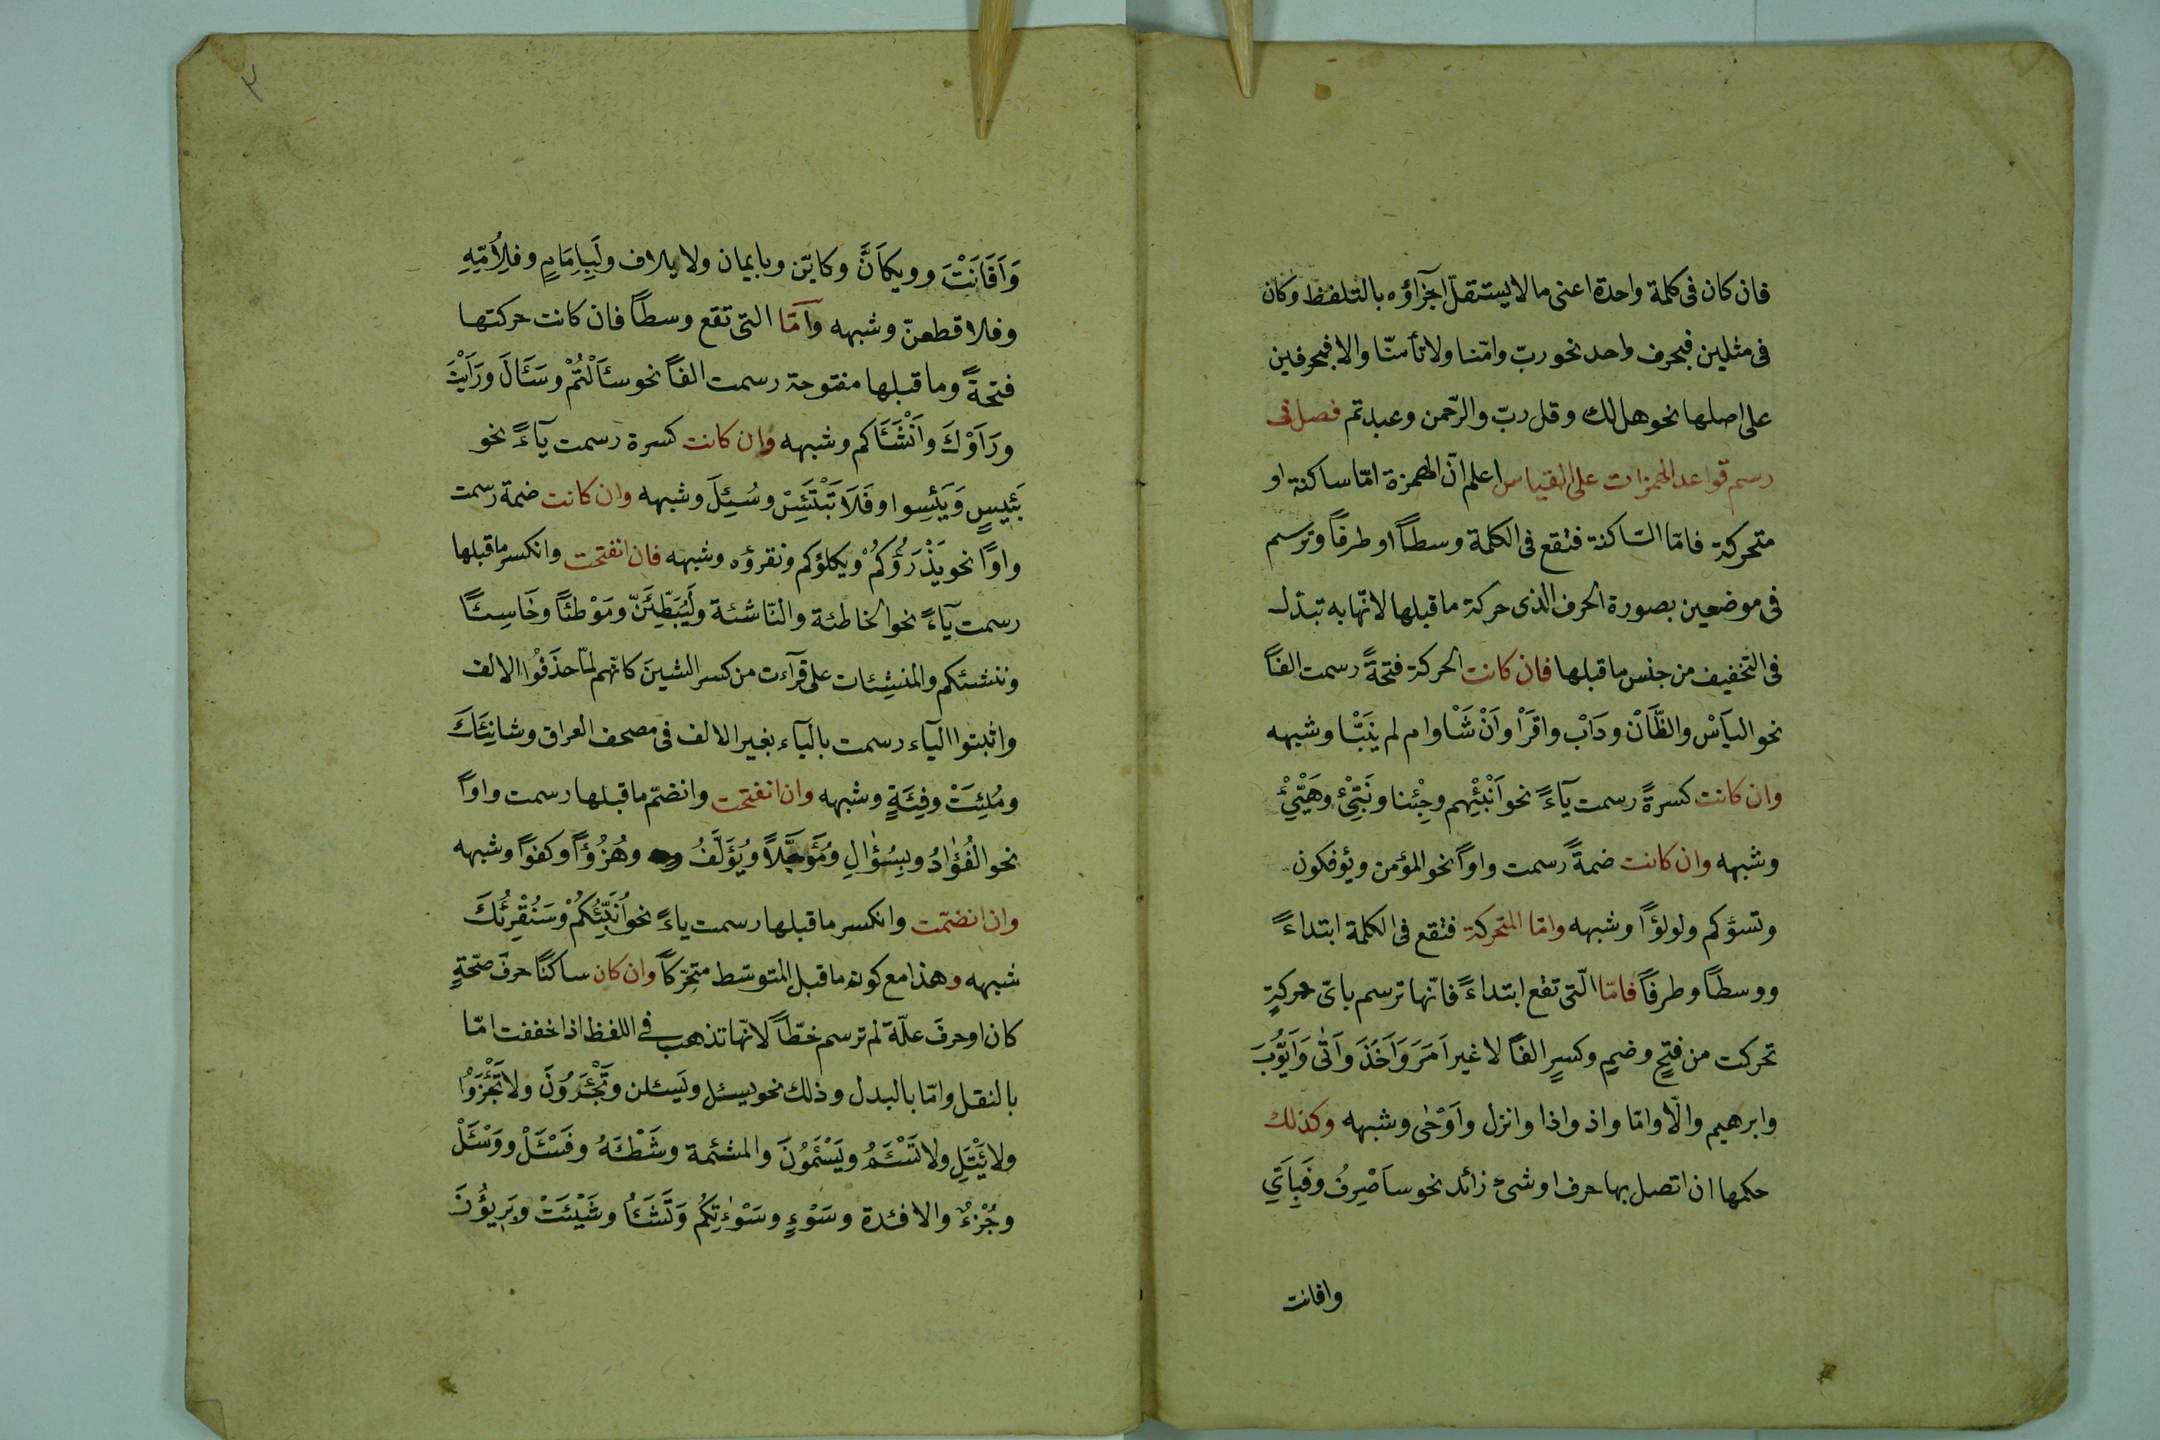 فان كان فى كلمة واحدة اعنى ما لا يستقلّ اجزاؤه بالتلفظ وكان
فى مثلين فبحرف واحد نحو ربّ وامّنا ولا تأمنّا والا فبحرفين
على اصلها نحو هل لك وقل ربّ والرّحمن وعبدتم فصل فى
رسم قواعد الهمزات على القياس اعلم انّ الهمزة امّا ساكنة او
متحركة فامّا السّاكنة فتقع فى الكلمة وسطاً او طرفاً وترسم
فى موضعين بصورة الحرف الذى حركة ما قبلها لانّها به تبدل
فى التخفيف من جنس ما قبلها فان كانت الحركة فتحةً رسمت الفاً
نحو البَأسْ والظَّمأنْ ودَابْ واقرَاْ وانْ شَاْ وام لم يُنَبَّا وشبهه
وان كانت كسرةً رسمت يآءً نحو اَنْبِئْهم وجِئْنا ونَبِّئْ وهَيِّئْ
وشبهه وان كانت ضمةً رسمت واواً نحو المؤمن ويؤفكون
وتسؤكم ولولؤاً وشبهه وامّا المتحركة فتقع فى الكلمة ابتداءً
ووسطاً وطرفاً فامّا الّتى تقع ابتداءً فانّها ترسم باىّ حركةٍ
تحركت من فتحٍ وضمٍ وكسرٍ الفاً لا غير اَمَرَ وَاَخَذَ واَتٰى وَاَيُّوبَ
وابرهيم والّا وامّا واذ واذا وانزل واَوْحٰى وشبهه وكذلك
حكمها ان اتصل بها حرف او شىء زائد نحو ساَصْرِفُ وفَبِاَىّ
وافانت
٢
وَاَفَاَنْتَ وويكاَنَّ وكايّن وبايمان ولايلاف ولَبِاِمَامٍ وفلِاُمّهِ
وفلاقطعنّ وشبهه وآمّا التى تقع وسطاً فان كانت حركتها
فتحةً وما قبلها مفتوحة رسمت الفاً نحو سئَالْتُمْ وسَئَالَ ورَاَيْتَ
ورَاَوْكَ واَنْشَئَاكم وشبهه وان كانت كسرة رسمت يآءً نحو
بَئِيسٍ وَيَئِسوا وفَلَا تَبْتَئِسْ وسُئِلَ وشبهه وان كانت ضمة رسمت
واواً نحو يَذْرَؤُكُمْ ويكلؤكم ونقرؤه وشبهه فان انفتحت وانكسر ما قبلها
رسمت يآءً نحو الخاطئة والنّاشئة ولَيُبَطِّئَنّ ومَوْطئًا وخَاسِئًا
وننشئكم والمنشِئات على قرآءت من كسر الشينَ كانّهم لمّا حذَفُوا الالف
واثبتوا اليآء رسمت باليآء بغير الالف فى مصحف العراق وشانِئَكَ
ومُلِئَتْ وفِئَةٍ وشبهه وان انفتحت وانضمّ ما قبلها رسمت واواً
نحو الفُؤَادُ وبِسُؤَالِ ومُؤَجَّلاً ويُؤَلِّفُ وهُزُؤاً وكفواً وشبهه
وان انضمت وانكسر ما قبلها رسمت ياءً نحو اُنَبِّئُكُمْ وسَنُقْرِئُكَ
شبهه وهذا مع كون ما قبل المتوسّط متحرّكاً وان كان ساكنًا حرفَ صحّةٍ
كان او حرفَ علّةَ لم ترسم خطّاً لانّها تذهب فى اللفظ اذا خففت امّا
بالنقل وامّا بالبدل وذلك نحو يسئل ويَسئلن وتَجْئَرُونَ ولا تَجْئَرَوُا
ولا يَئْتَلِ ولا تَسْئَمُ ويَسْئَمُونَ والمشئمة وشَطْئَهُ وفَسْئَلْ ووَسْئَلْ
وجُزْءٌ والافئدة وسَوْءٍ وسَوْءٰتِكُم وَتَشَاُ وشَيْئَتْ وبَرِيؤُنَ